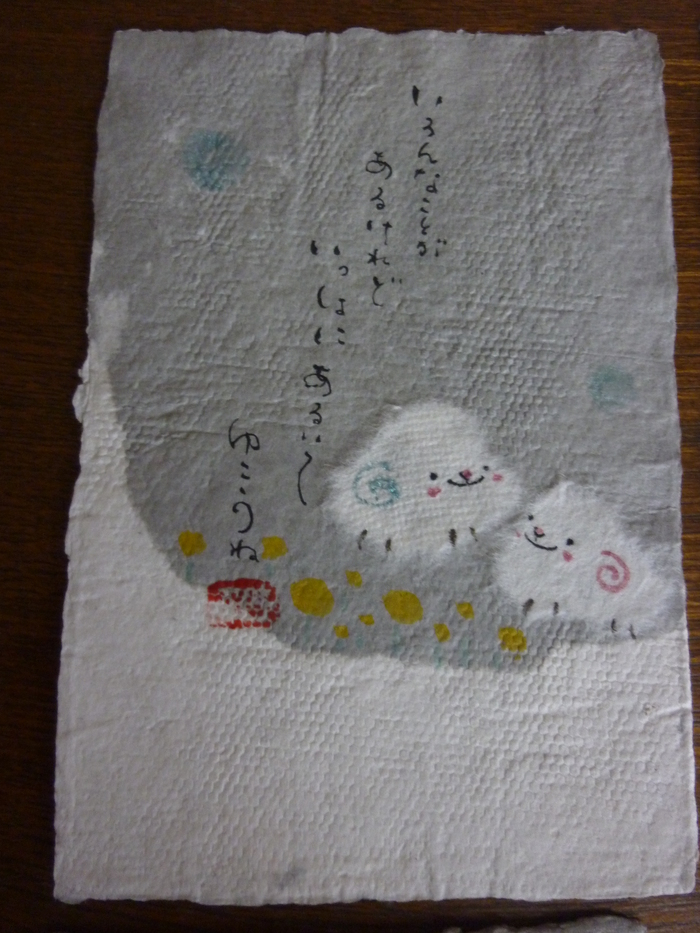 いろんなことが
あるけれど
いっしょに あるこ〜